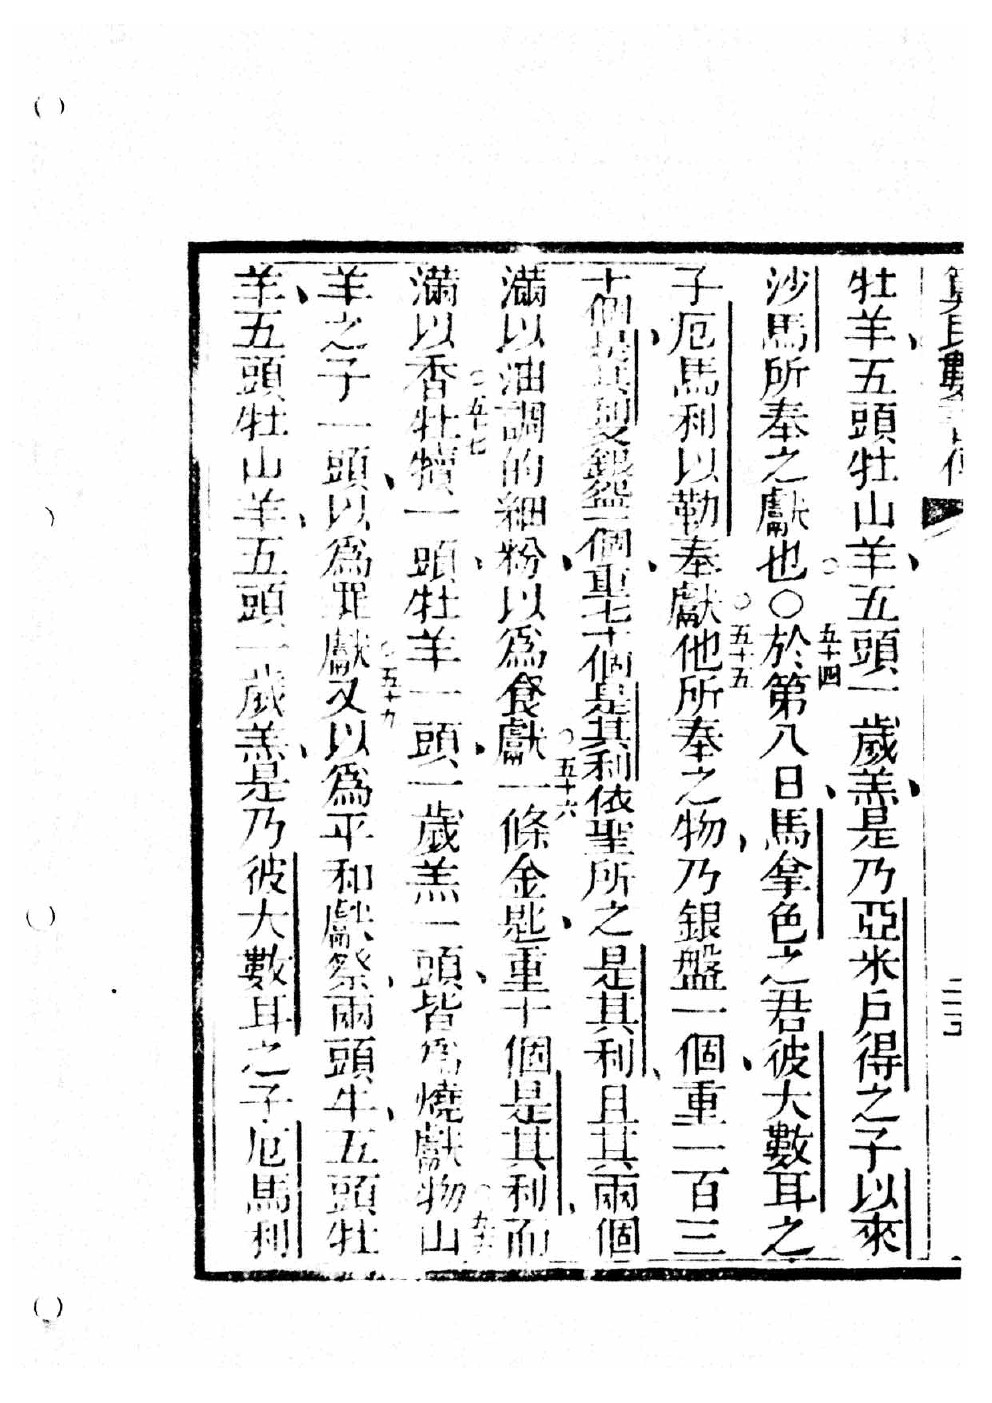 數
牡羊、五頭牡山羊、五頭一歲羔、是乃亞米戶得之子以來
沙馬所奉之獻也○五十四於第八日、馬拿色之君彼大數耳之
子厄馬利以勒奉獻○五十五他所奉之物、乃銀盤一個、重一百三
十個是其利、又銀盌一個、重七十個是其利、依聖所之是其利、且其兩個
滿以油調的細粉、以爲食獻○五十六一條金匙、重十個是其利、而
滿以香○五十七牡犢一頭、牡羊一頭、一歲羔一頭、皆爲燒獻物○五十八山
羊之子一頭、以爲罪獻○五十九又以爲平和獻祭、兩頭牛、五頭牡
羊、五頭牡山羊、五頭一歲羔、是乃彼大數耳之子厄馬利